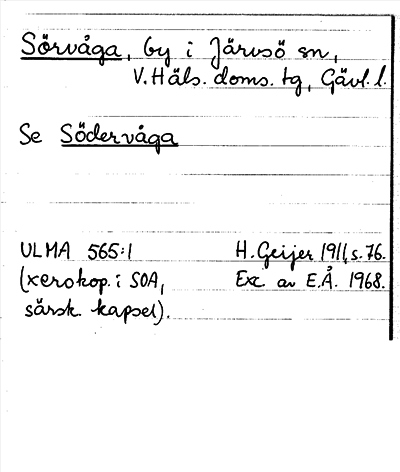 Sörvåga, by i Järvsö sn,
V. Häls. doms. tg, Gävl. l.
Se Södervåga
ULMA 565:1 H. Geijer 1911, s. 76.
(xerokop. i SOA, Exc. av E.Å. 1968.
särsk. kapsel).